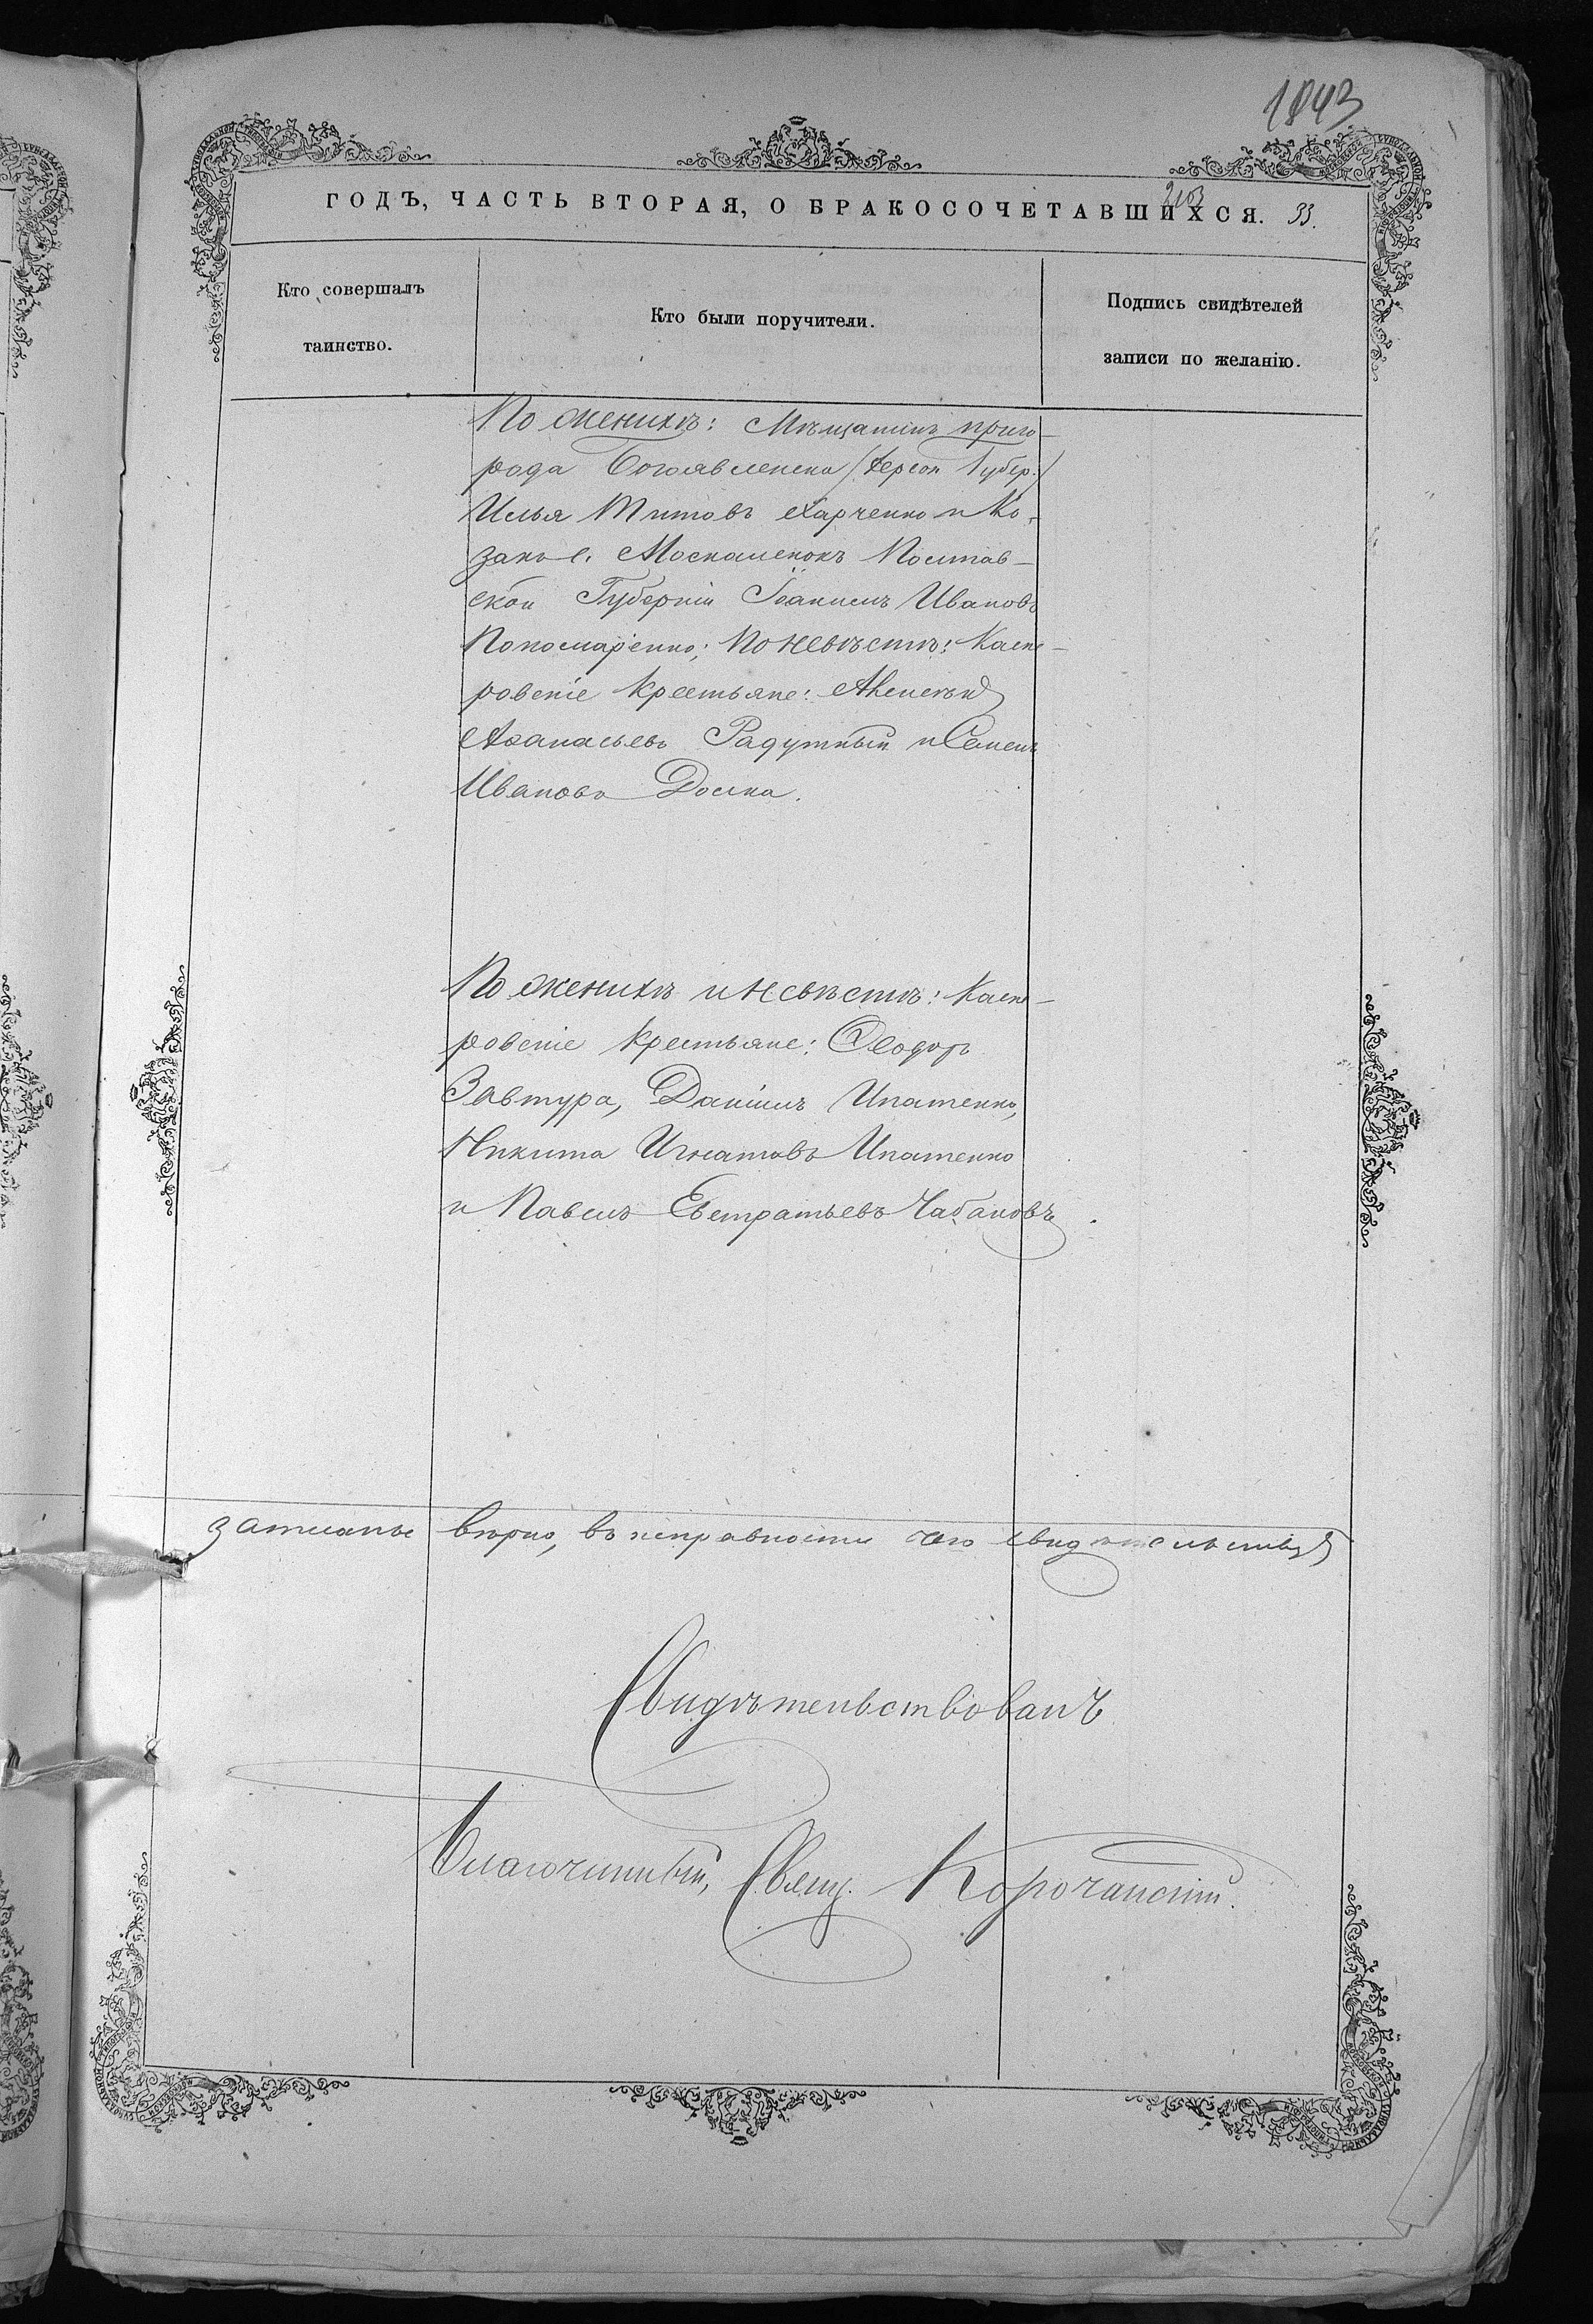 1043
ГОДЪ, ЧАСТЬ ВТОРАЯ, О БРАКОСОЧЕТАВШИХСЯ. 33.
2103
Кто совершалъ
таинство.
Кто были поручители.
Подпись свидѣтелей
записи по желанію.
По женихѣ: Мѣщанинъ приго-
рода Богоявленска (Херсон Губер.)
Илья Титовъ Харченко и Ко-
закъ с. Москаленокъ Полтав-
ской Губерніи Іоанникъ Ивановъ
Пономаренко; По невѣстѣ: Каспе-
ровскіе крестьяне: Алексѣй
Аѳанасьевъ Радутный и Семенъ
Ивановъ Долка.
По женихѣ и невѣстѣ: Каспе-
ровскіе крестьяне: Ѳеодоръ
Завтура, Даніилъ Ипатенко,
Никита Игнатовъ Ипатенко
и Павелъ Евстратьевъ Чабановъ.
записаны вѣрно, въ исправности чего свидѣтельствуемъ
Свидѣтельствовалъ
Благочинный, Свящ. Корочанскій.